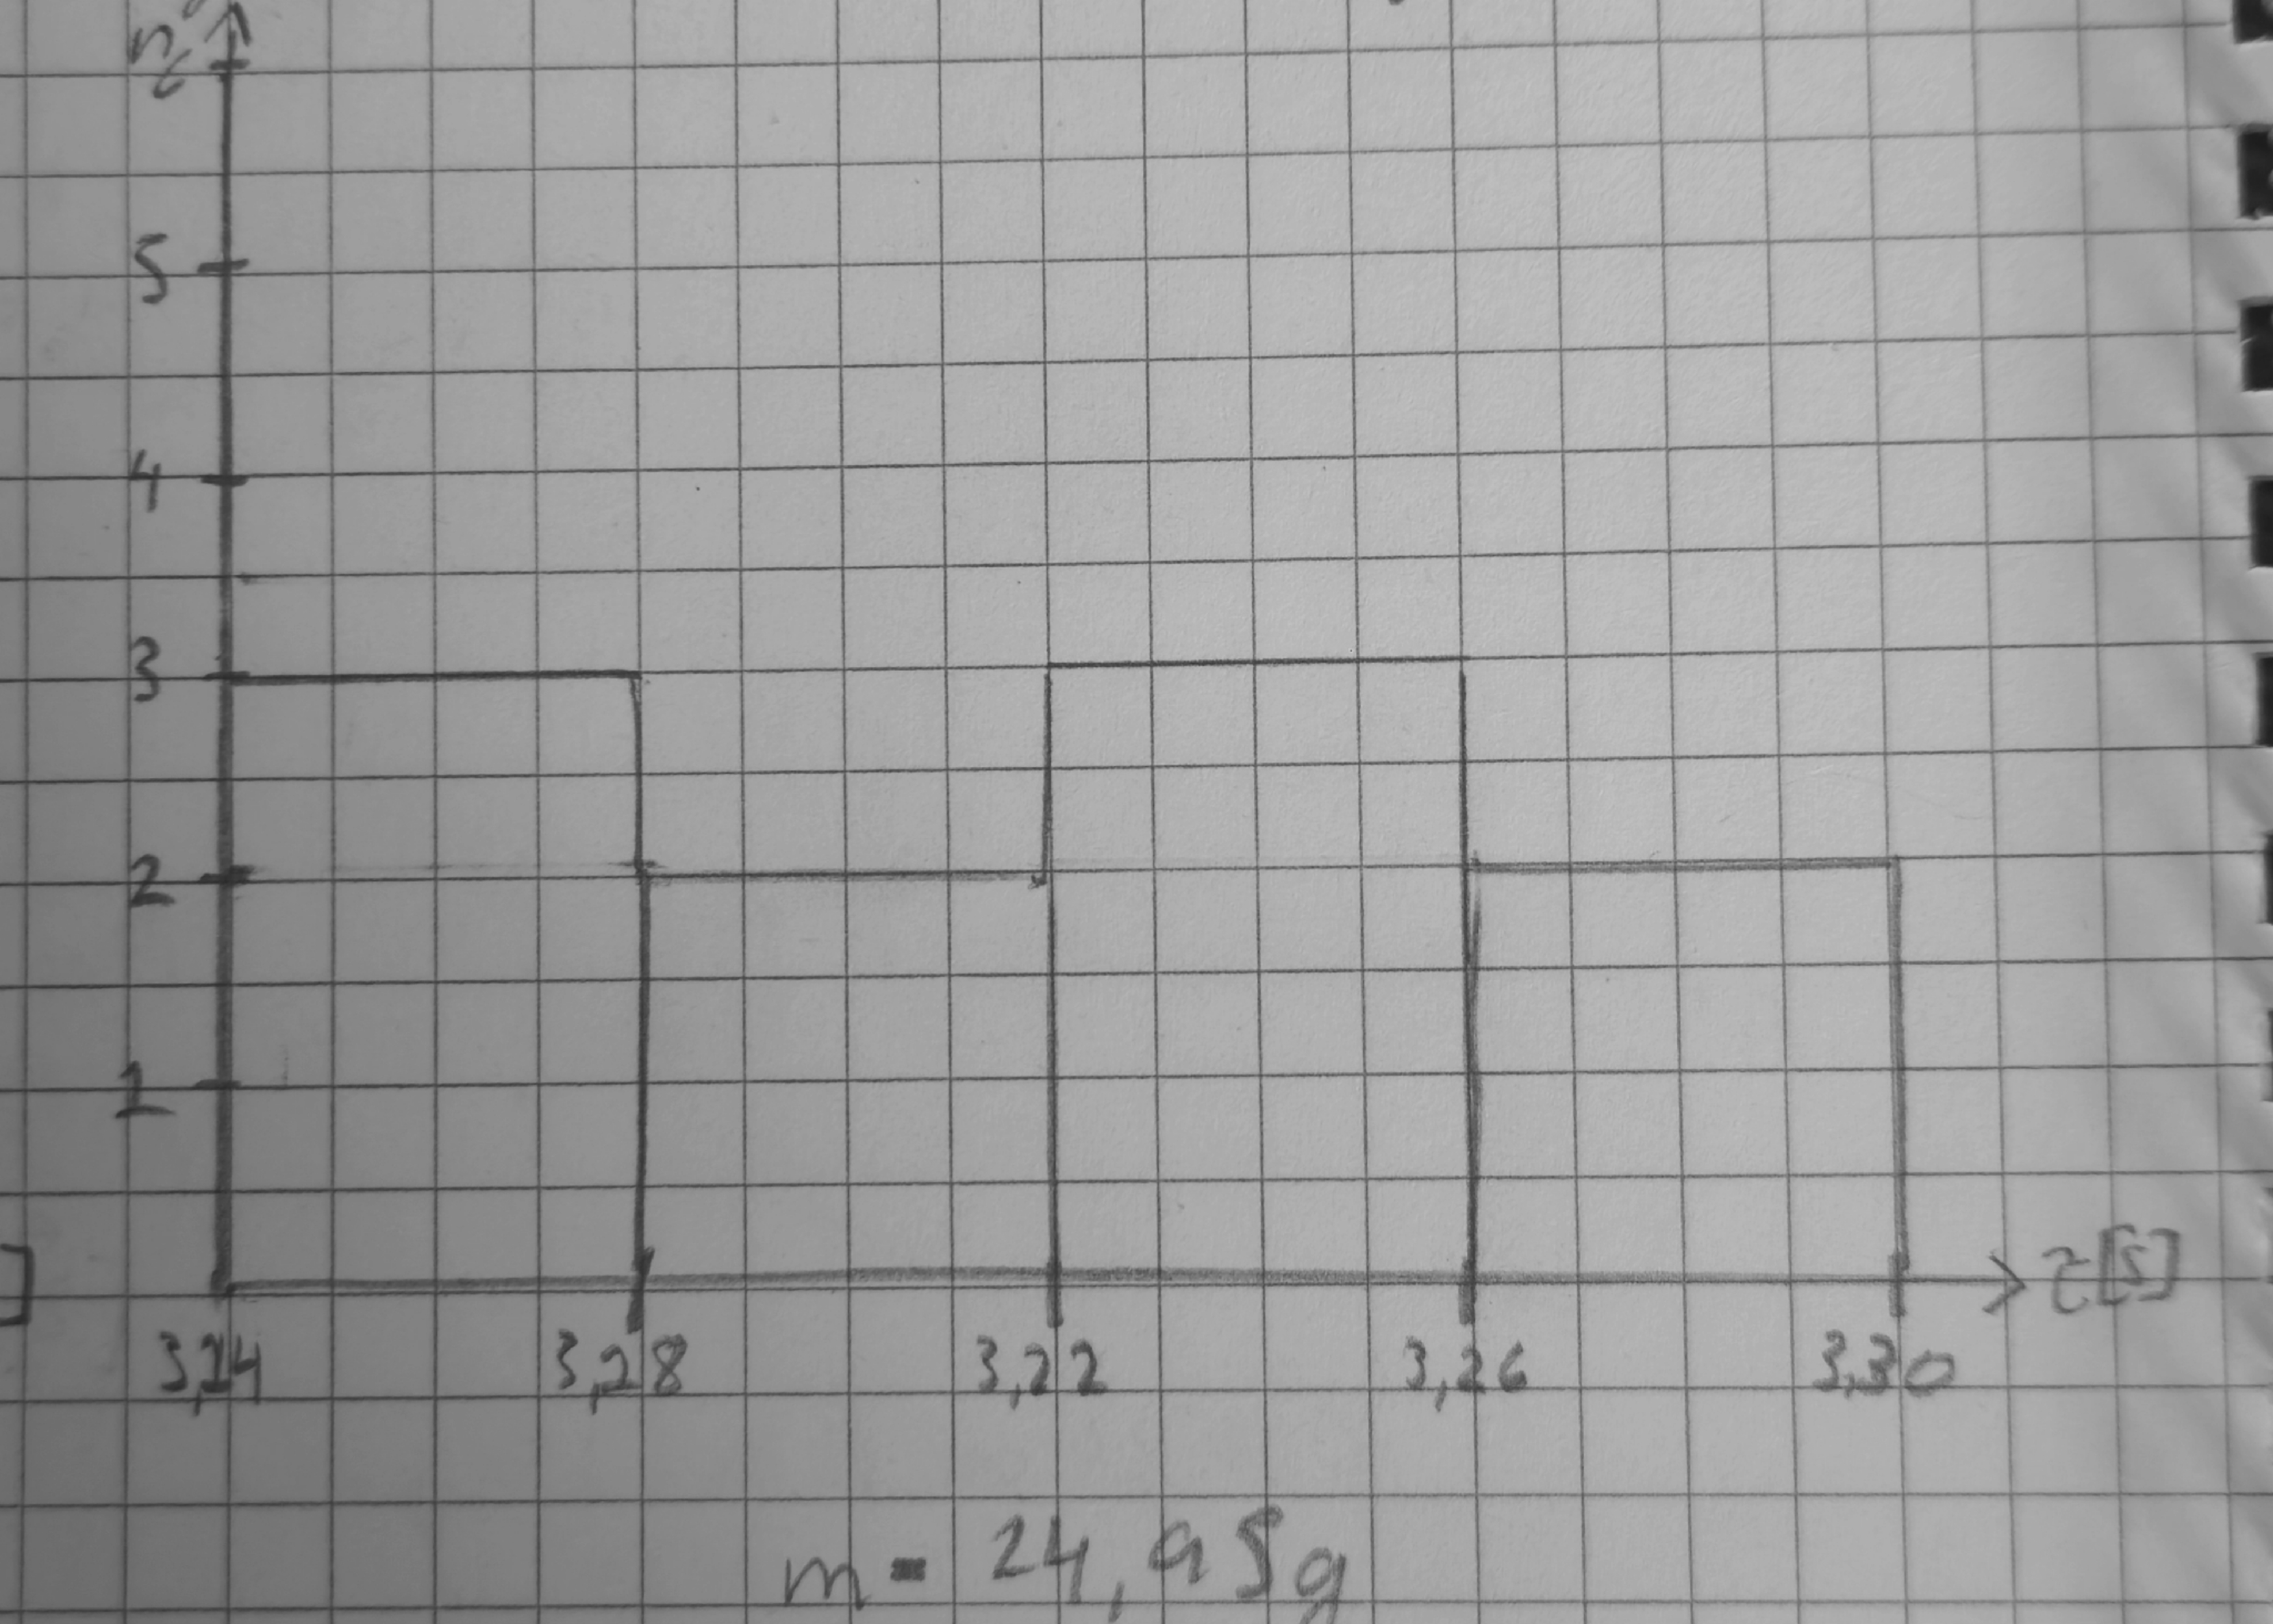 n
5
4
3
2
1
3,14 3,28 3,22 3,26 3,30 τ[s]
m = 24,95g